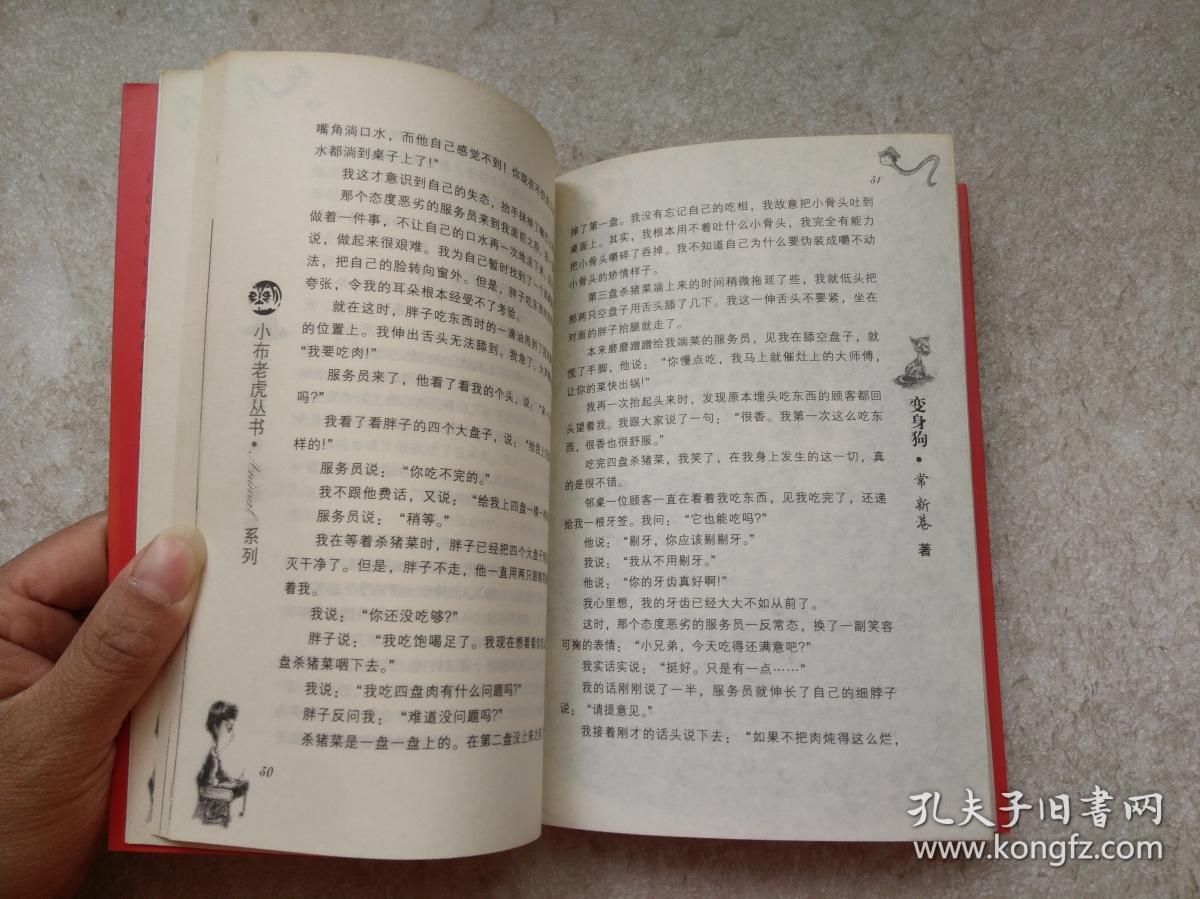 嘴角淌口水，而他自己感觉不到！你现在不
水都淌到桌子上了！”
我这才意识到自己的失态，抬手抹掉了嘴
那个态度恶劣的服务员来到我面前之前，我
做着一件事，不让自己的口水再一次地流下来。
说，做起来很艰难。我为自己暂时找到了一个
法，把自己的脸转向窗外。但是，胖子吃东西的
夸张，令我的耳朵根本经受不了考验。
就在这时，胖子吃东西时的一滴油甩到了
的位置上。我伸出舌头无法舔到。我急了，大声
“我要吃肉！”
服务员来了，他看了看我的个头，说：“来一
吗？”
我看了看胖子的四个大盘子，说：“给我上
样的！”
服务员说：“你吃不完的。”
我不跟他费话，又说：“给我上四盘一模一
服务员说：“稍等。”
我在等着杀猪菜时，胖子已经把四个大盘子
灭干净了。但是，胖子不走，他一直用两只眼睛
着我。
我说：“你还没吃够？”
胖子说：“我吃饱喝足了。我现在想看看你
盘杀猪菜咽下去。”
我说：“我吃四盘肉有什么问题吗？”
胖子反问我：“难道没问题吗？”
杀猪菜是一盘一盘上的。在第二盘没上来之
50
小布老虎丛书·Animal系列
51
掉了第一盘。我没有忘记自己的吃相，我故意把小骨头吐到
桌面上。其实，我根本用不着吐什么小骨头，我完全有能力
把小骨头嚼碎了吞掉。我不知道自己为什么要伪装成嚼不动
小骨头的矫情样子。
第三盘杀猪菜端上来的时间稍微拖延了些，我就低头把
那两只空盘子用舌头舔了几下。我这一伸舌头不要紧，坐在
对面的胖子抬腿就走了。
本来磨磨蹭蹭给我端菜的服务员，见我在舔空盘子，就
慌了手脚，他说：“你慢点吃，我马上就催灶上的大师傅，
让你的菜快出锅！”
我再一次抬起头来时，发现原本埋头吃东西的顾客都回
头望着我。我跟大家说了一句：“很香。我第一次这么吃东
西，很香也很舒服。”
吃完四盘杀猪菜，我笑了，在我身上发生的这一切，真
的是很不错。
邻桌一位顾客一直在看着我吃东西，见我吃完了，还递
给我一根牙签。我问：“它也能吃吗？”
他说：“剔牙，你应该剔剔牙。”
我说：“我从不用剔牙。”
他说：“你的牙齿真好啊！”
我心里想，我的牙齿已经大大不如从前了。
这时，那个态度恶劣的服务员一反常态，换了一副笑容
可掬的表情：“小兄弟，今天吃得还满意吧？”
我实话实说：“挺好。只是有一点……”
我的话刚刚说了一半，服务员就伸长了自己的细脖子
说：“请提意见。”
我接着刚才的话头说下去：“如果不把肉炖得这么烂，
变身狗·常新港 著
孔夫子旧书网
www.kongfz.com